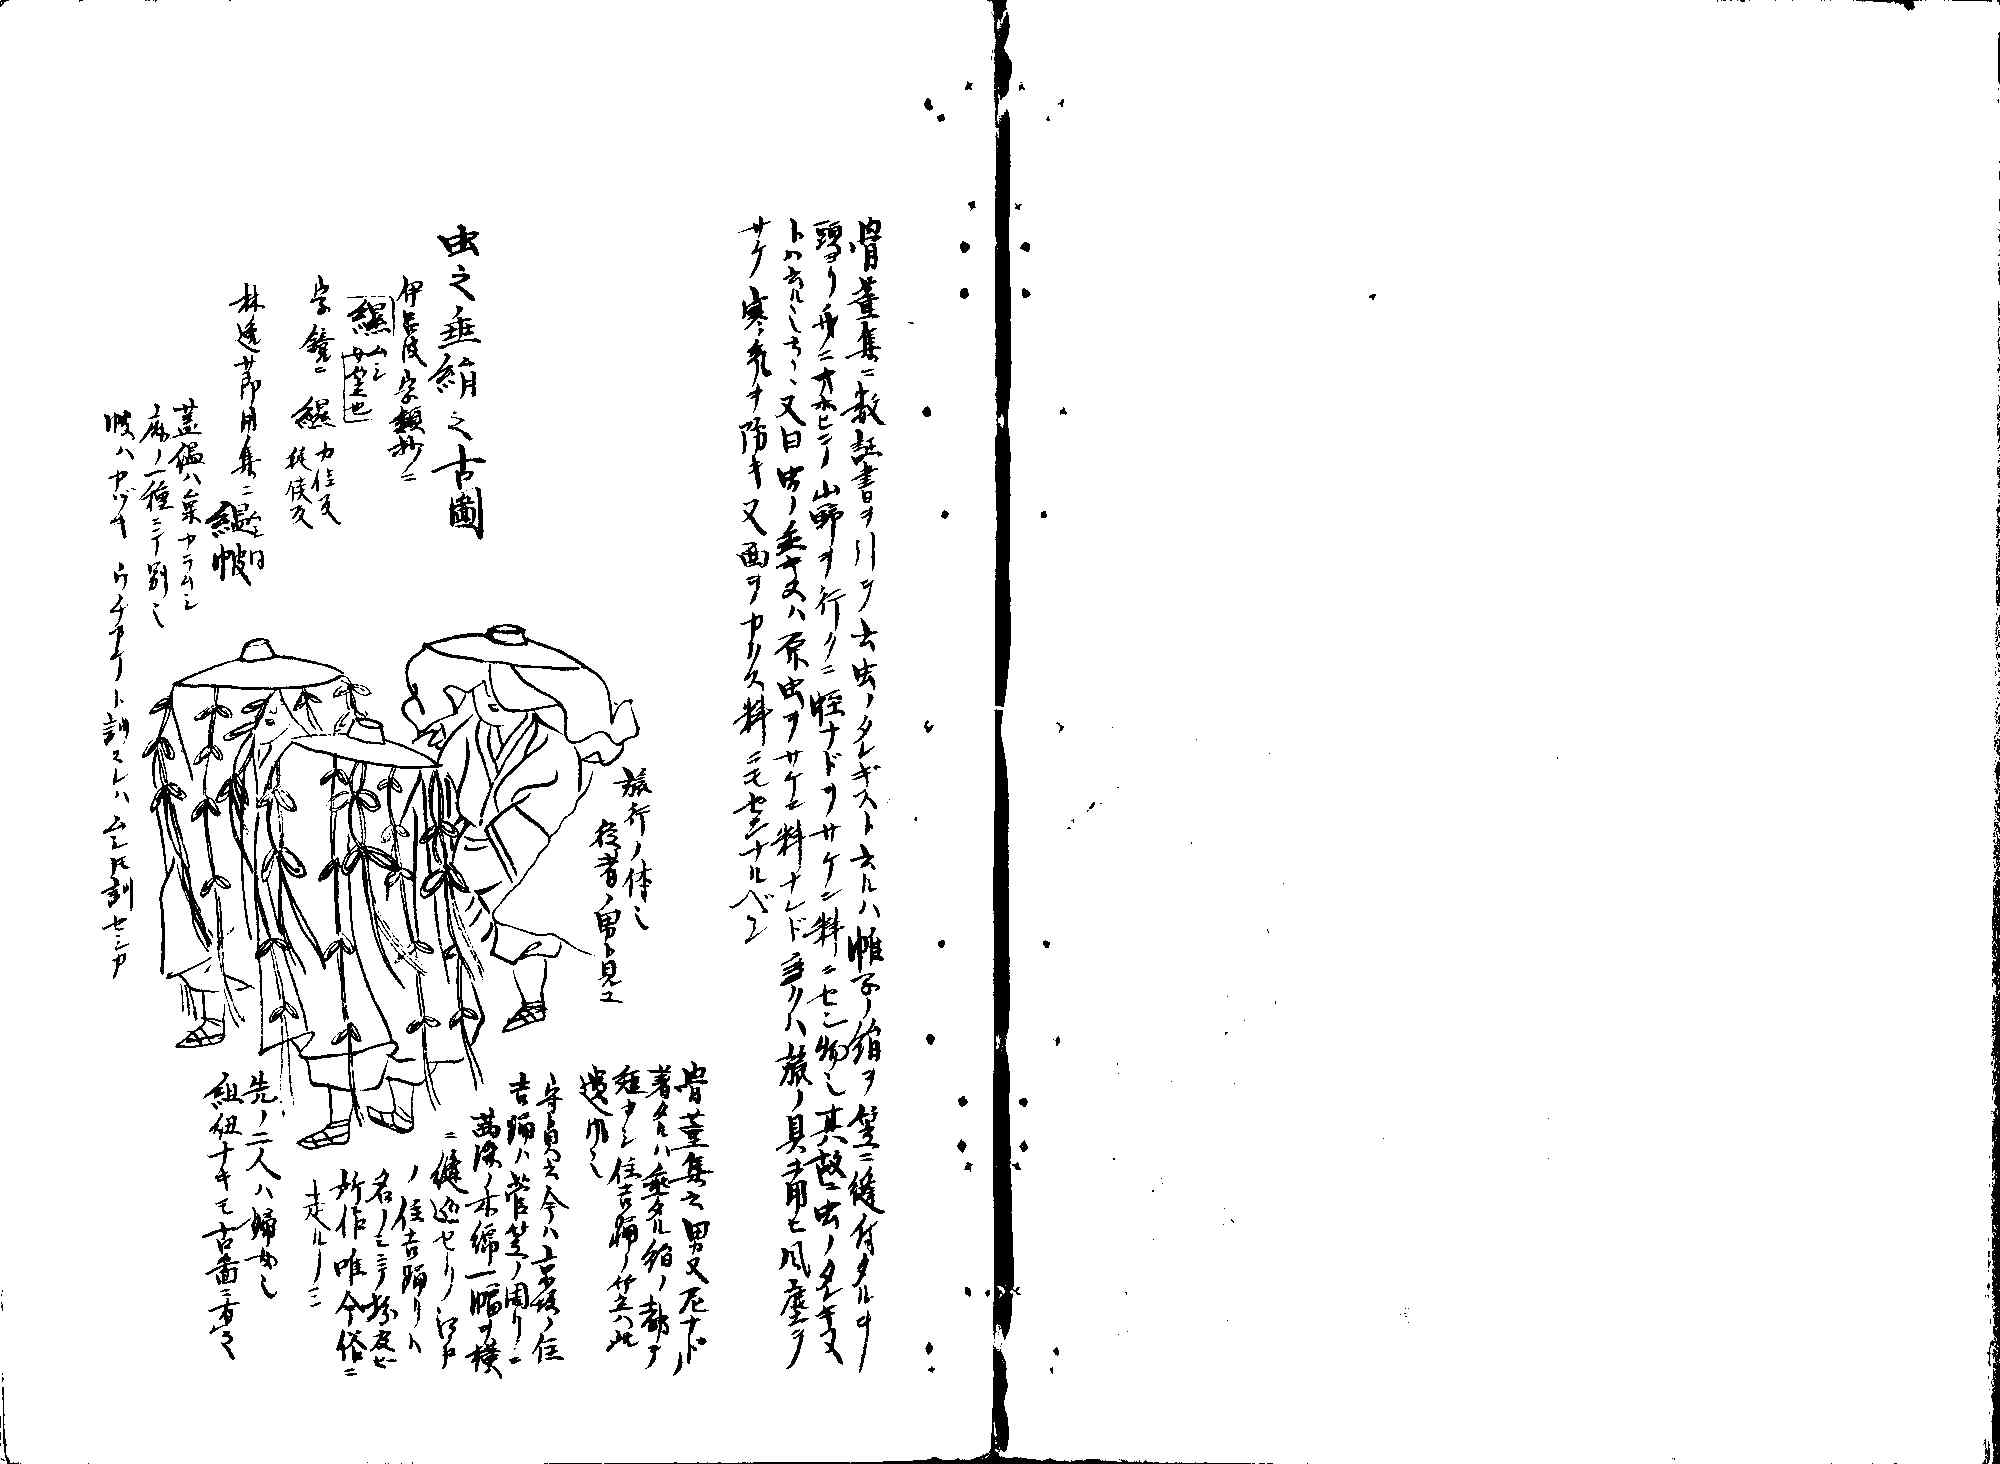 骨董集ニ数証書ヲ引テ云虫ノタレギヌト云ルハ帷子ノ絹ヲ笠ニ縫付タルヲ
頭ヨリ身ニオホヒテ山野ヲ行クニ蛭ナドヲサケン料ニセシ物也其故ニ虫ノタレキヌ
トハ云ル也云々又曰虫ノ垂キヌハ原虫ヲサケン料ナレド後ハ旅ノ具ニ用ヒ風塵ヲ
サケ寒気ヲ防キ又面ヲカクス料ニモセシナルベシ
虫之垂絹之古圖
伊呂波字類抄ニ
縲ムシ
サ 也
字鏡ニ縲力佳反
杜侯反
林逸節用集ニ縕帔 ニ曰
蓋縕ハ枲カラムシ
麻ノ一種ニテ別也
帔ハカヅキ ウチカケト訓スレハ ムシト訓セシカ
旅行ノ体也
従者ノ男ト見ユ
骨董集云男又尼ナドノ
著タルハ垂タル絹ノ
短カシ住吉踊ノ笠ハ此
遺風也
守貞云今ハ京坂ノ住
吉踊ハ菅笠ノ周リニ
茜染ノ木綿一幅ヲ横
ニ縫巡セリ江戸
ノ住吉踊リハ
名ノミニテ扮
所作唯今俗ニ
走ルノミ
先ノ二人ハ婦女也
組紐ナキモ古畫ニ有之